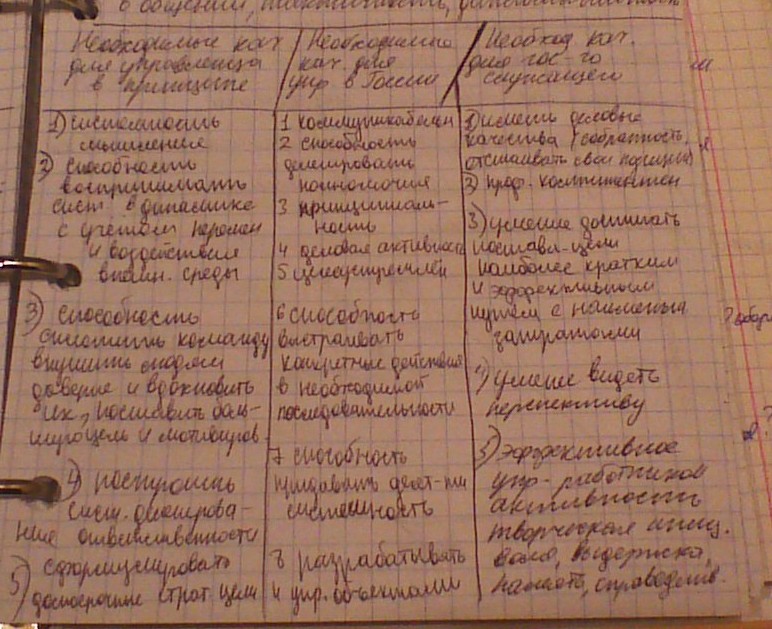 в общении, тактичность,
Необходимые кач.
для управленца
в принципе
Необходимые
кач. для
упр в России
Необход. кач.
для гос-го
служащего
1) системность
мышления
2) способность
воспринимать
сист. в динамике
с учётом перемен
и воздействия
внешн. среды
3) способность
сплотить команду
внушить людям
доверие и вдохновить
их, поставить боль-
шую цель и мотивиров.
4) построить
сист. делегирова-
ния ответственности
5) сформулировать
долгосрочные страт. цели
1 коммуникабелен
2 способность
делегировать
полномочия
3 принципиаль-
ность
4 деловая активность
5 целеустремлён
6 способность
выстраивать
конкретные действия
в необходимой
последовательности
7 способность
придавать деят-ти
системность
8 разрабатывать
и упр. объектами
1) иметь деловые
качества (собранность,
отстаивать свои позиции)
2) проф. компетентен
3) умение достигать
поставл-цели
наиболее кратким
и эффективным
путём с наименьш.
затратами
4) умение видеть
перспективу
5) эффективное
упр- работников
активность
творческая иниц.
воля, выдержка,
память, справедлив.